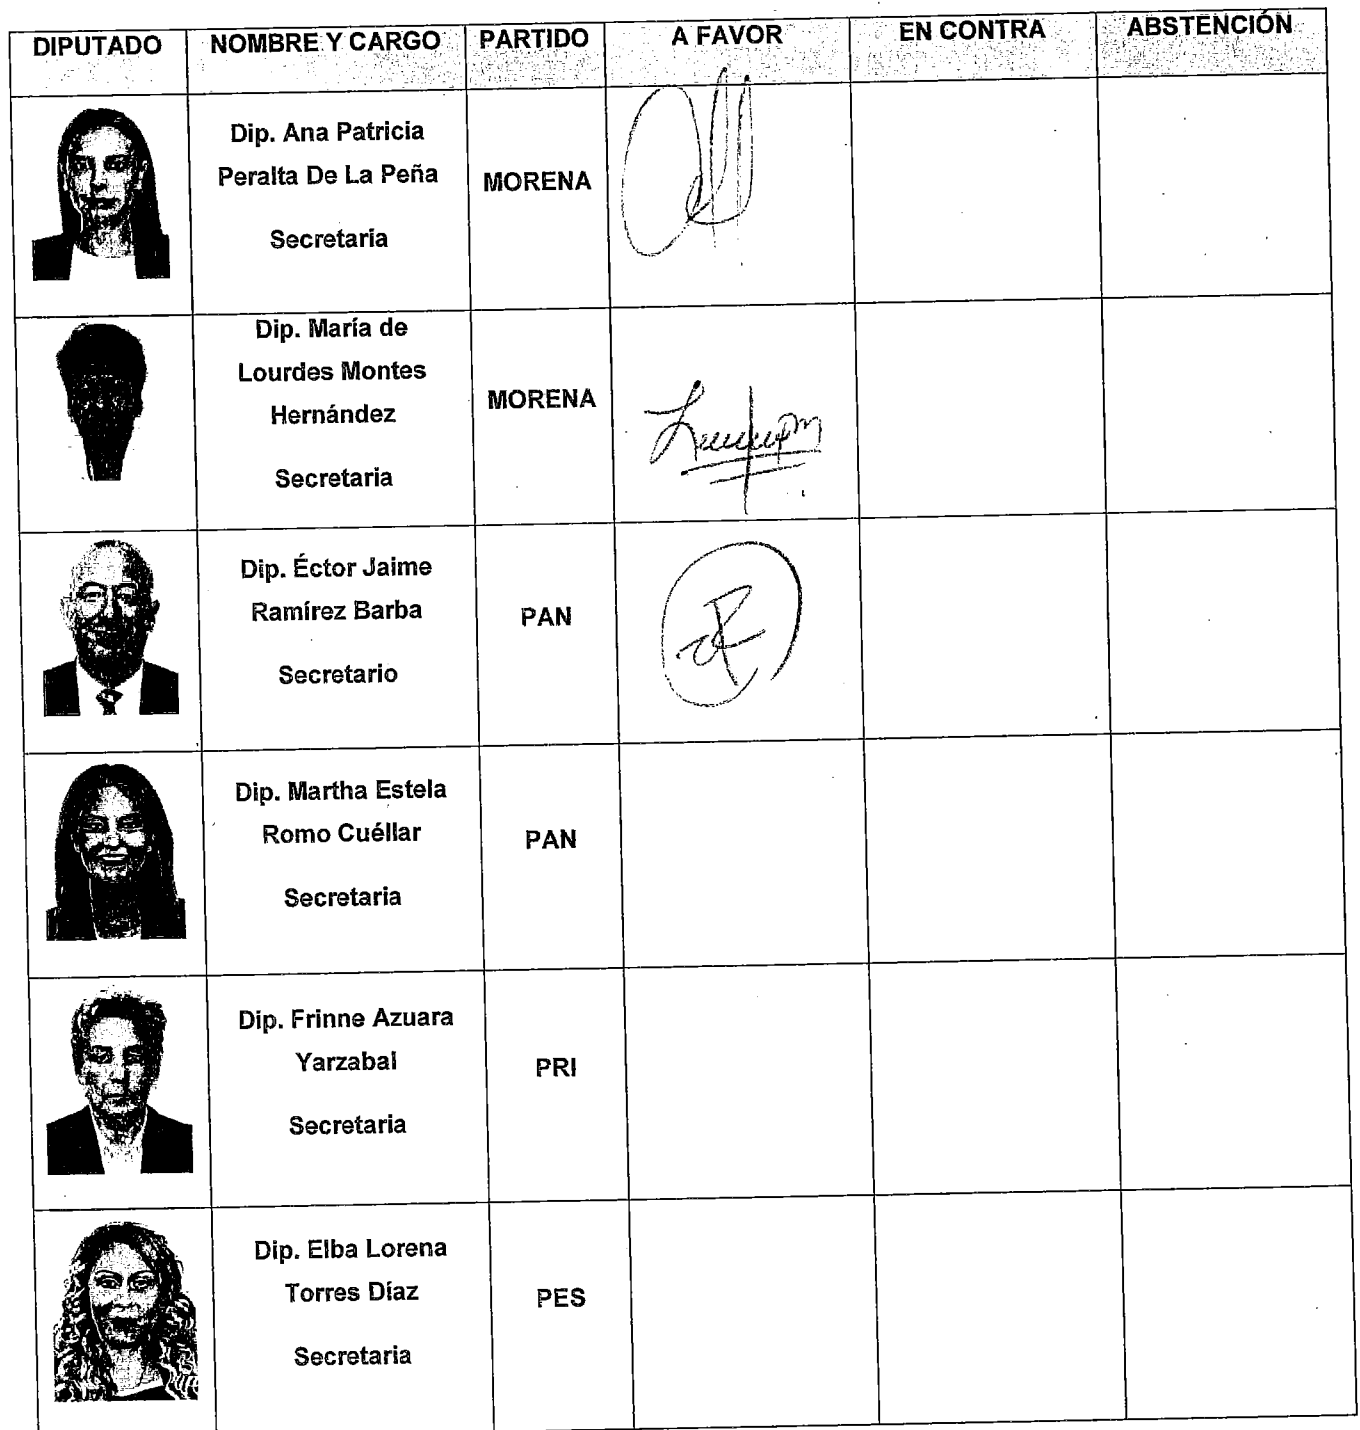 DIPUTADO NOMBRE Y CARGO PARTIDO A FAVOR EN CONTRA ABSTENCIÓN
Dip. Ana Patricia
Peralta De La Peña
MORENA
Secretaria
Dip. María de
Lourdes Montes
Hernández
MORENA
Secretaria
Dip. Éctor Jaime
Ramírez Barba
PAN
Secretario
Dip. Martha Estela
Romo Cuéllar
PAN
Secretaria
Dip. Frinne Azuara
Yarzabal
PRI
Secretaria
Dip. Elba Lorena
Torres Díaz
PES
Secretaria